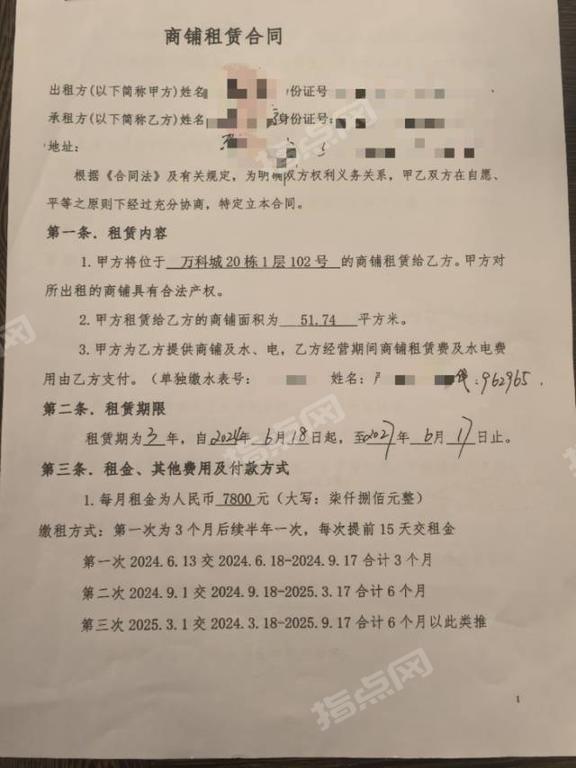 商铺租赁合同
出租方(以下简称甲方)姓名 身份证号
承租方(以下简称乙方)姓名 身份证号:
地址:
根据《合同法》及有关规定，为明确双方权利义务关系，甲乙双方在自愿、
平等之原则下经过充分协商，特定立本合同。
第一条．租赁内容
1.甲方将位于 万科城20栋1层102号 的商铺租赁给乙方。甲方对
所出租的商铺具有合法产权。
2.甲方租赁给乙方的商铺面积为 51.74 平方米。
3.甲方为乙方提供商铺及水、电，乙方经营期间商铺租赁费及水电费
用由乙方支付。（单独缴水表号: 姓名: :962965.
第二条．租赁期限
租赁期为3年，自2024年6月18日起，至2027年6月17日止。
第三条．租金、其他费用及付款方式
1.每月租金为人民币 7800 元（大写：柒仟捌佰元整）
缴租方式：第一次为3个月后续半年一次，每次提前15天交租金
第一次2024.6.13交2024.6.18-2024.9.17合计3个月
第二次2024.9.1交2024.9.18-2025.3.17合计6个月
第三次2025.3.1交2024.3.18-2025.9.17合计6个月以此类推
1
指点网